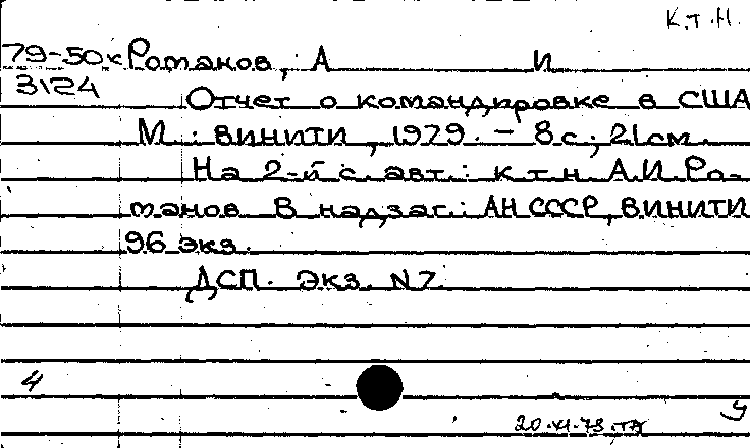 К.т.Н.
79-50к Романов, А И
3124
Отчет о командировке в США
М. : ВИНИТИ, 1979. - 8 с ; 21 см.
На 2-й с. авт.: к.т.н. А.И. Ро-
манов. В надзаг.: АН СССР, ВИНИТИ
96 экз.
ДСП. Экз. N7.
4
У